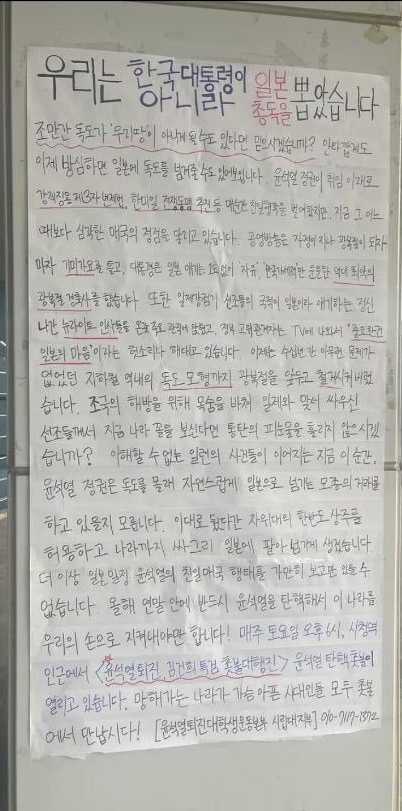 우리는 한국대통령이 아니라 일본 총독을 뽑았습니다
조만간 독도가 '우리땅'이 아니게 될 수도 있다면 믿으시겠습니까? 안타깝게도
이제 방심하면 일본에 독도를 넘겨줄 수도 있어보입니다. 윤석열 정권이 취임 이래로
강제징용 제3자 변제법, 한미일 전쟁동맹 추진 등 매순간 친일행각을 벌여왔지만, 지금 그 어느
때보다 심각한 매국의 정점을 달리고 있습니다. 공영방송은 자정이 지나 광복절이 되자
마자 기미가요를 틀고, 대통령은 일본 얘기는 1도 없이 '자유', '반국가세력'만 운운한 역대 최악의
광복절 경축사를 했습니다. 또한 일제강점기 선조들의 국적이 일본이라 얘기하는 정신
나간 뉴라이트 인사들을 온갖 요직에 앉혔고, 정부 고위관계자는 TV에 나와서 '중요한 건
일본의 마음'이라는 헛소리나 해대고 있습니다. 이제는 수십년간 아무런 문제가
없었던 지하철 역내의 독도 모형까지 광복절을 앞두고 철거시켜버렸
습니다. 조국의 해방을 위해 목숨을 바쳐 일제와 맞서 싸우신
선조들께서 지금 나라 꼴을 보신다면 통탄의 피눈물을 흘리지 않으시겠
습니까? 이해할 수 없는 일련의 사건들이 이어지는 지금 이 순간,
윤석열 정권은 독도를 몰래 자연스럽게 일본으로 넘기는 모종의 거래를
하고 있을지 모릅니다. 이대로 뒀다간 자위대의 한반도 상주를
허용하고 나라까지 싸그리 일본에 팔아 넘기게 생겼습니다.
더 이상 일본 밀정 윤석열의 친일매국 행태를 가만히 보고만 있을 수
없습니다. 올해 연말 안에 반드시 윤석열을 탄핵해서 이 나라를
우리의 손으로 지켜내야만 합니다! 매주 토요일 오후 6시, 시청역
인근에서 <윤석열퇴진, 김건희 특검 촛불대행진> 윤석열 탄핵 촛불이
열리고 있습니다. 망해가는 나라가 가슴 아픈 시대인들 모두 촛불
에서 만납시다! [윤석열퇴진대학생운동본부 시립대지부] 010-7117-1372